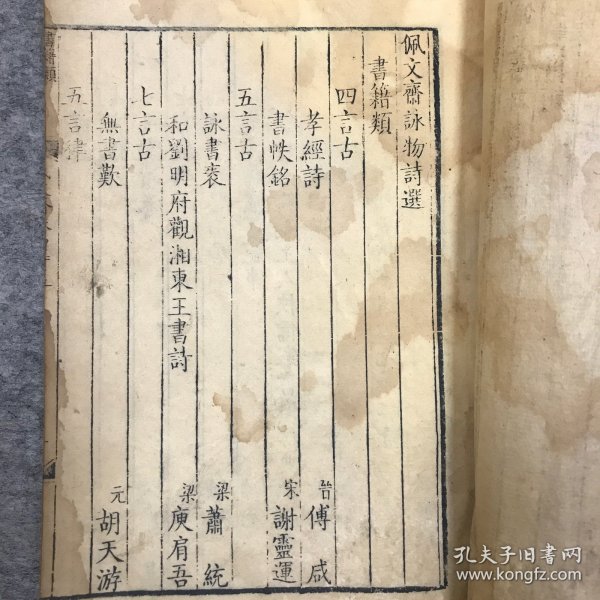 佩文齋詠物詩選
書籍類
四言古
孝經詩 晉 傅咸
書帙銘 宋 謝靈運
五言古
詠書裘 梁 蕭統
和劉明府觀湘東王書詩 梁 庾肩吾
七言古
無書歎 元 胡天游
五言律
孔夫子旧书网
www.kongfz.com